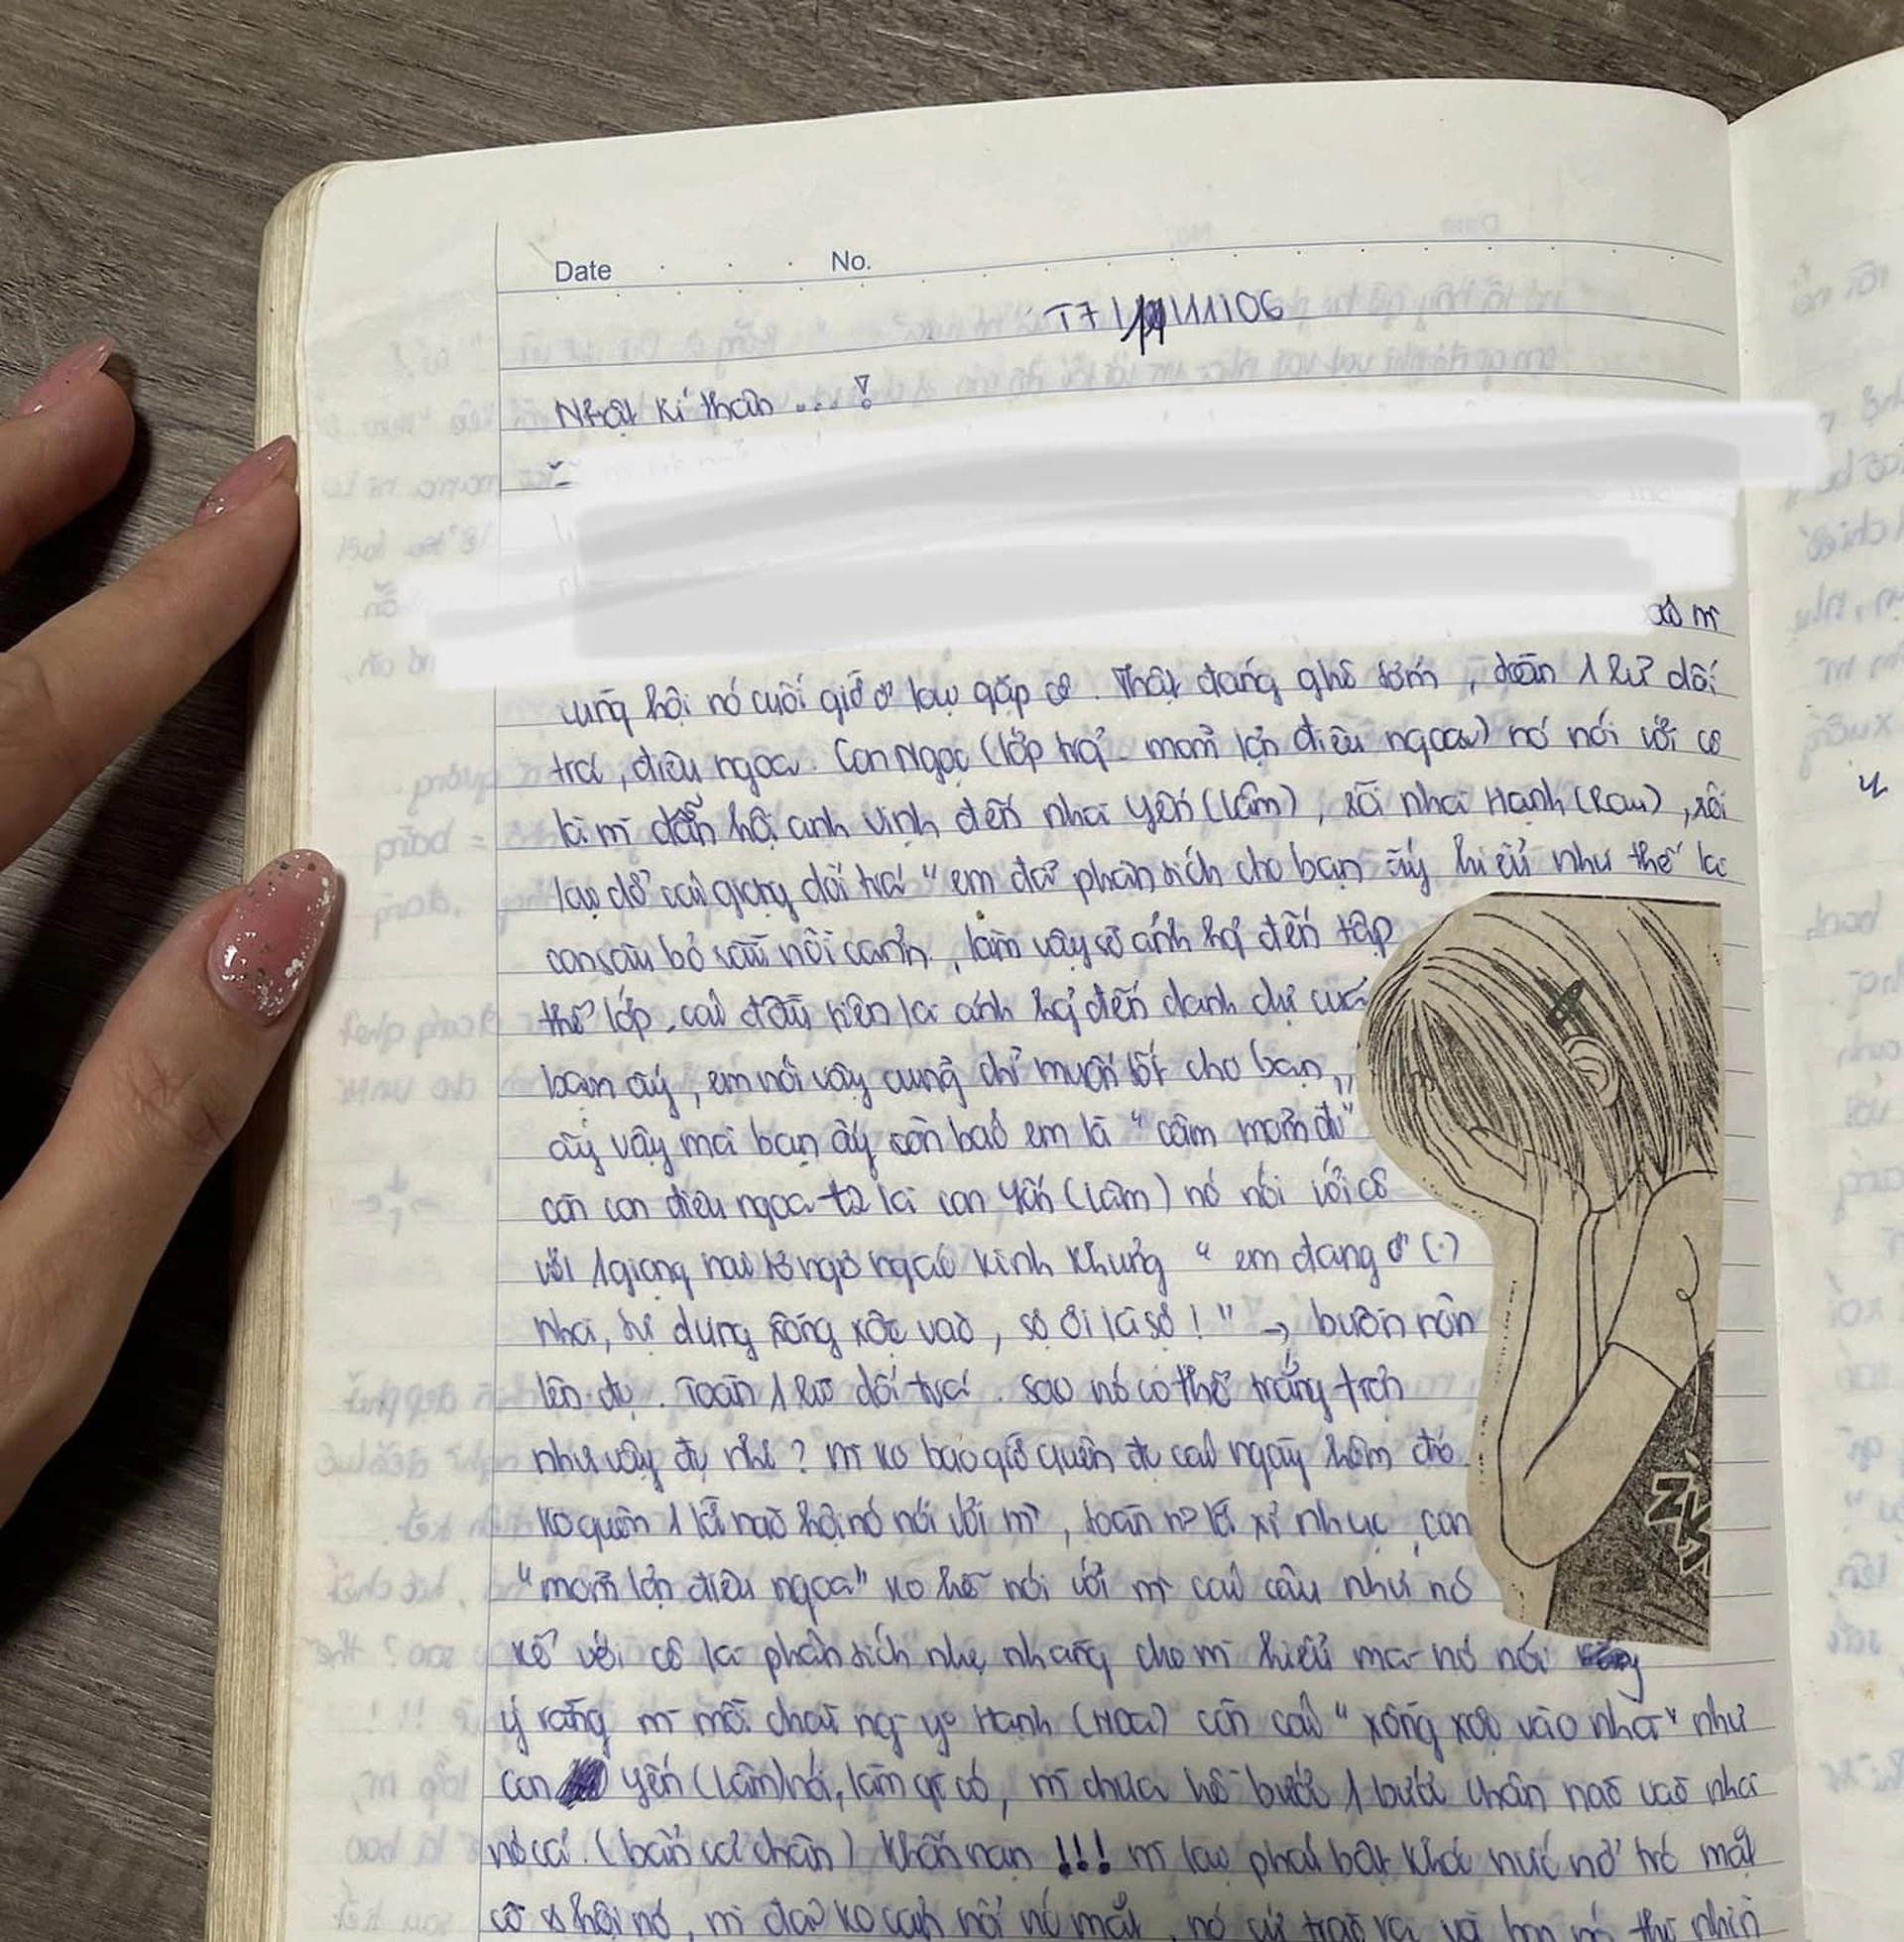 Date No.
T7 11/11/06
Nhật kí thân ...!
cùng hội nó cuối giờ ở lại gặp cô. Thật đáng ghê tởm, toàn 1 lũ dối
trá, điêu ngoa. Con Ngọc (lớp trg̉ - mồm lợn điêu ngoa) nó nói với cô
là m̀ dẫn hội anh Vinh đến nhà Yến (Lâm), rồi nhà Hạnh, rồi
lại dở cái giọng dối trá "em đã phân tích cho bạn ấy hiểu như thế là
con sâu bỏ rầu nồi canh, làm vậy sẽ ảnh hg̉ đến tập
thể lớp. cái đầu tiên là ảnh hg̉ đến danh dự của
bạn ấy, em nói vậy cũng chỉ muốn tốt cho bạn"
ấy vậy mà bạn ấy còn bảo em là "câm mồm đi"
còn con điêu ngoa t2 là con Yến (Lâm) nó nói với cô
với 1 giọng nai tơ ngơ ngác kinh khủng "em đang ở (.)
nhà, tự dưng xồng xộc vào, sợ ơi là sợ!" → buồn nôn
lên đc. Toàn 1 lũ dối trá. sao nó có thể trắng trợn
như vậy đc nhỉ? m̀ ko bao giờ quên đc cái ngày hôm đó.
Ko quên 1 lời nào hội nó nói với m̀, toàn n~ lời xỉ nhục, con
"mồm lợn điêu ngoa" ko hề nói với m̀ cái câu như nó
kể với cô là phân tích nhẹ nhàng cho m̀ hiểu mà nó nói
ý rằng m̀ mồi chài ng- y° Hạnh (Hoa) còn cái "xồng xộc vào nhà" như
con Yến (Lâm) nói, làm gì có, m̀ chưa hề bước 1 bước chân nào vào nhà
nó cả. (bẩn cả chân) Khốn nạn !!! m̀ lại phải bật khóc nức nở trc mặt
cô & hội nó, m̀ đã ko cầm nổi nc mắt, nó cứ trào ra và bọn nó thì nhìn